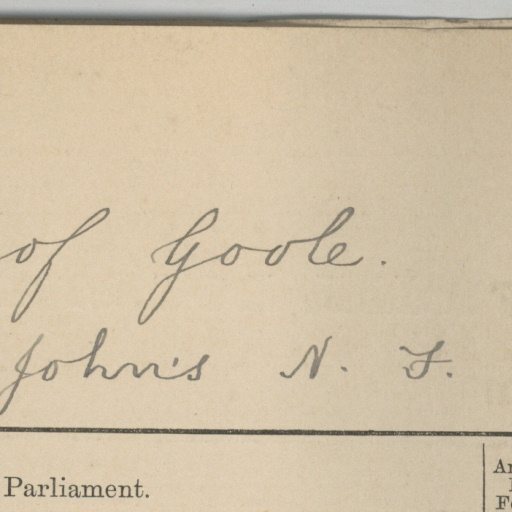 of Goole.
John's N. F.
Parliament.